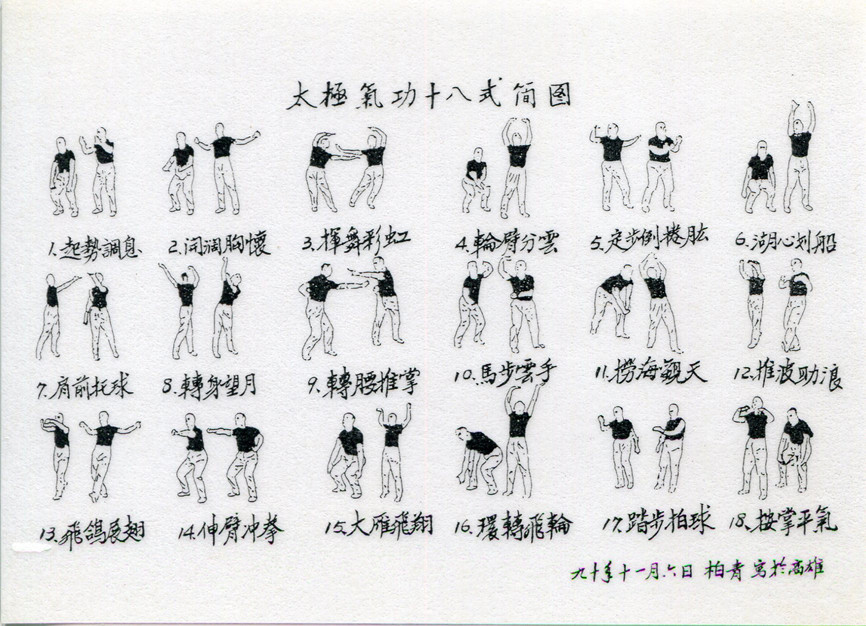 太極氣功十八式简图
1.起勢調息 2.開阔胸懷 3.揮舞彩虹 4.輪臂分雲 5.定步倒捲肱 6.湖心划船
7.肩前托球 8.轉身望月 9.轉腰推掌 10.馬步雲手 11.撈海觀天 12.推波助浪
13.飛鴿展翅 14.伸臂冲拳 15.大雁飛翔 16.環轉飛輪 17.踏步拍球 18.按掌平氣
九十年十一月六日 柏青 寫於高雄